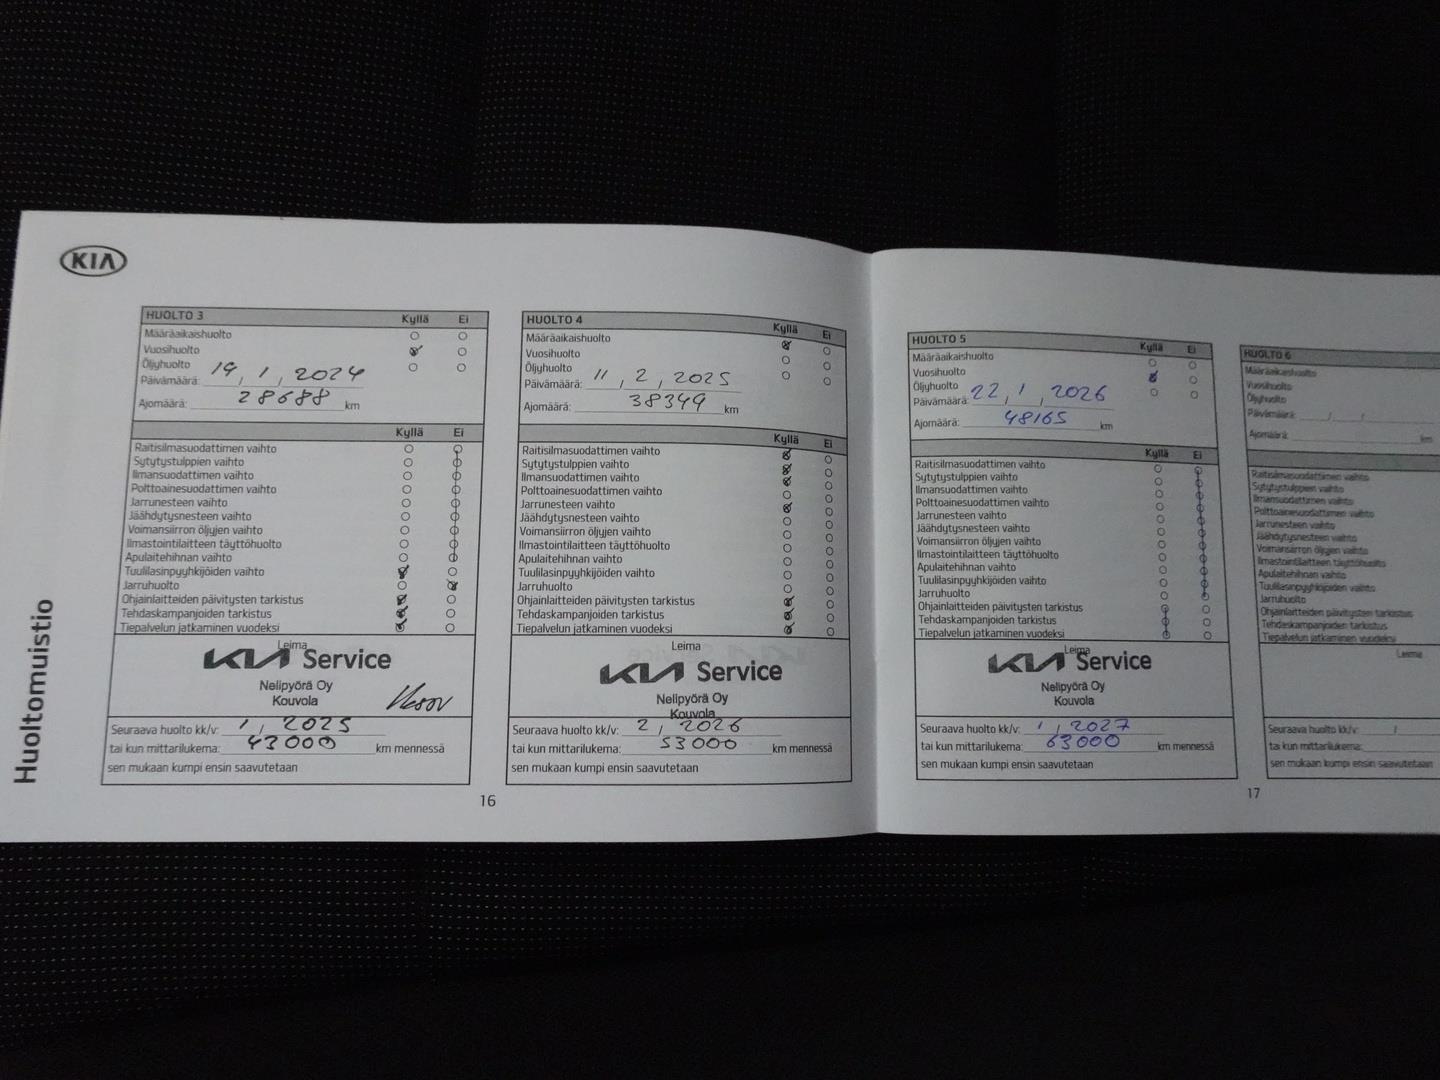 KIA
Huoltomuistio
HUOLTO 3 Kyllä Ei
Määräaikaishuolto
Vuosihuolto
Öljyhuolto
Päivämäärä: 19, 1, 2024
Ajomäärä: 28688 km
Kyllä Ei
Raitisilmasuodattimen vaihto
Sytytystulppien vaihto
Ilmansuodattimen vaihto
Polttoainesuodattimen vaihto
Jarrunesteen vaihto
Jäähdytysnesteen vaihto
Voimansiirron öljyjen vaihto
Ilmastointilaitteen täyttöhuolto
Apulaitehihnan vaihto
Tuulilasinpyyhkijöiden vaihto
Jarruhuolto
Ohjainlaitteiden päivitysten tarkistus
Tehdaskampanjoiden tarkistus
Tiepalvelun jatkaminen vuodeksi
Leima
KIA Service
Nelipyörä Oy
Kouvola
Seuraava huolto kk/v: 1, 2025
tai kun mittarilukema: 43000 km mennessä
sen mukaan kumpi ensin saavutetaan
16
HUOLTO 4 Kyllä Ei
Määräaikaishuolto
Vuosihuolto
Öljyhuolto
Päivämäärä: 11, 2, 2025
Ajomäärä: 38349 km
Kyllä Ei
Raitisilmasuodattimen vaihto
Sytytystulppien vaihto
Ilmansuodattimen vaihto
Polttoainesuodattimen vaihto
Jarrunesteen vaihto
Jäähdytysnesteen vaihto
Voimansiirron öljyjen vaihto
Ilmastointilaitteen täyttöhuolto
Apulaitehihnan vaihto
Tuulilasinpyyhkijöiden vaihto
Jarruhuolto
Ohjainlaitteiden päivitysten tarkistus
Tehdaskampanjoiden tarkistus
Tiepalvelun jatkaminen vuodeksi
Leima
KIA Service
Nelipyörä Oy
Kouvola
Seuraava huolto kk/v: 2, 2026
tai kun mittarilukema: 53000 km mennessä
sen mukaan kumpi ensin saavutetaan
HUOLTO 5 Kyllä Ei
Määräaikaishuolto
Vuosihuolto
Öljyhuolto
Päivämäärä: 22, 1, 2026
Ajomäärä: 48165 km
Kyllä Ei
Raitisilmasuodattimen vaihto
Sytytystulppien vaihto
Ilmansuodattimen vaihto
Polttoainesuodattimen vaihto
Jarrunesteen vaihto
Jäähdytysnesteen vaihto
Voimansiirron öljyjen vaihto
Ilmastointilaitteen täyttöhuolto
Apulaitehihnan vaihto
Tuulilasinpyyhkijöiden vaihto
Jarruhuolto
Ohjainlaitteiden päivitysten tarkistus
Tehdaskampanjoiden tarkistus
Tiepalvelun jatkaminen vuodeksi
Leima
KIA Service
Nelipyörä Oy
Kouvola
Seuraava huolto kk/v: 1, 2027
tai kun mittarilukema: 63000 km mennessä
sen mukaan kumpi ensin saavutetaan
17
HUOLTO 6
Määräaikaishuolto
Vuosihuolto
Öljyhuolto
Päivämäärä: / /
Ajomäärä: km
Raitisilmasuodattimen vaihto
Sytytystulppien vaihto
Ilmansuodattimen vaihto
Polttoainesuodattimen vaihto
Jarrunesteen vaihto
Jäähdytysnesteen vaihto
Voimansiirron öljyjen vaihto
Ilmastointilaitteen täyttöhuolto
Apulaitehihnan vaihto
Tuulilasinpyyhkijöiden vaihto
Jarruhuolto
Ohjainlaitteiden päivitysten tarkistus
Tehdaskampanjoiden tarkistus
Tiepalvelun jatkaminen vuodeksi
Leima
Seuraava huolto kk/v: /
tai kun mittarilukema:
sen mukaan kumpi ensin saavutetaan